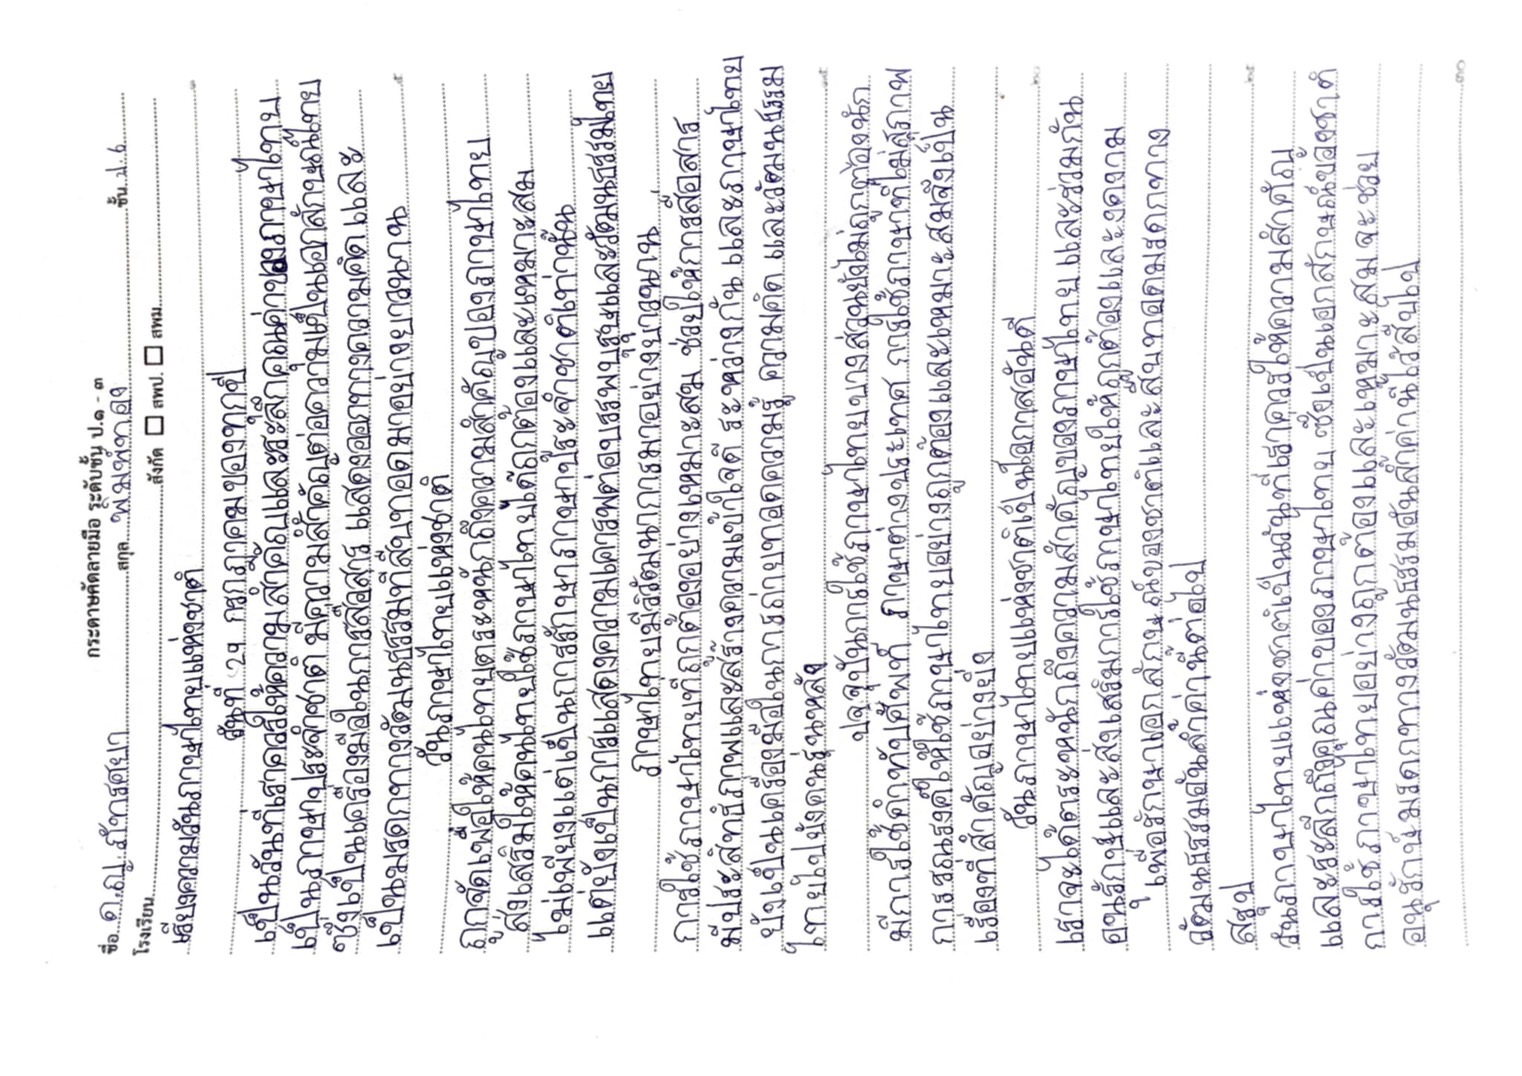 กระดาษคัดลายมือ ระดับชั้น ป.๑ - ๓
ชื่อ ด.ญ. สกุล พิมพ์ทอง ชั้น ป.6
โรงเรียน สังกัด สพป. สพม.
เรียงความวันภาษาไทยแห่งชาติ
วันที่ 29 กรกฎาคมของทุกปี
เป็นวันที่เราควรให้ความสำคัญและระลึกคุณค่าของภาษาไทย
เป็นภาษาประจำชาติ มีความสำคัญต่อความเป็นเอกลักษณ์ไทย
ซึ่งเป็นเครื่องมือในการสื่อสาร แสดงออกทางความคิด และ
เป็นมรดกทางวัฒนธรรมที่สืบทอดมาอย่างยาวนาน
วันภาษาไทยแห่งชาติ
ถูกจัดเพื่อให้คนไทยตระหนักถึงความสำคัญของภาษาไทย
ส่งเสริมให้คนไทยใช้ภาษาไทยได้ถูกต้องและเหมาะสม
ไม่เพียงแต่เป็นการรักษาภาษาประจำชาติเท่านั้น
แต่ยังเป็นการแสดงความเคารพต่อบรรพบุรุษและวัฒนธรรมไทย
ภาษาไทยมีวิวัฒนาการมาอย่างยาวนาน
การใช้ภาษาไทยที่ถูกต้องอย่างเหมาะสม ช่วยให้การสื่อสาร
มีประสิทธิภาพและสร้างความเข้าใจดี ระหว่างกัน และภาษาไทย
ยังเป็นเครื่องมือในการถ่ายทอดความรู้ ความคิด และวัฒนธรรม
ไทยไปยังคนรุ่นหลัง
ปัจจุบันการใช้ภาษาไทยบางส่วนยังไม่ถูกต้องนัก
มีการใช้คำทับศัพท์ ภาษาต่างประเทศ การใช้ภาษาที่ไม่สุภาพ
การรณรงค์ให้ใช้ภาษาไทยอย่างถูกต้องและเหมาะสมจึงเป็น
เรื่องที่สำคัญอย่างยิ่ง
วันภาษาไทยแห่งชาติเป็นโอกาสอันดี
เราจะได้ตระหนักถึงความสำคัญของภาษาไทย และร่วมกัน
อนุรักษ์และส่งเสริมการใช้ภาษาไทยให้ถูกต้องและงดงาม
เพื่อรักษาเอกลักษณ์ของชาติและสืบทอดมรดกทาง
วัฒนธรรมอันล้ำค่านี้ต่อไป
สรุป
วันภาษาไทยแห่งชาติเป็นวันที่เราควรให้ความสำคัญ
และระลึกถึงคุณค่าของภาษาไทย ซึ่งเป็นเอกลักษณ์ของชาติ
การใช้ภาษาไทยอย่างถูกต้องและเหมาะสมจะช่วย
อนุรักษ์มรดกทางวัฒนธรรมอันล้ำค่านี้ไว้สืบไป